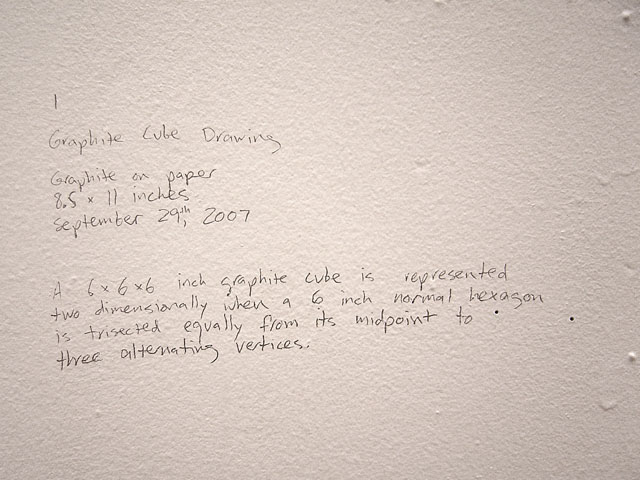 1
Graphite Cube Drawing
Graphite on paper
8.5 × 11 inches
September 29th, 2007
A 6×6×6 inch graphite cube is represented
two dimensionally when a 6 inch normal hexagon
is trisected equally from its midpoint to
three alternating vertices.